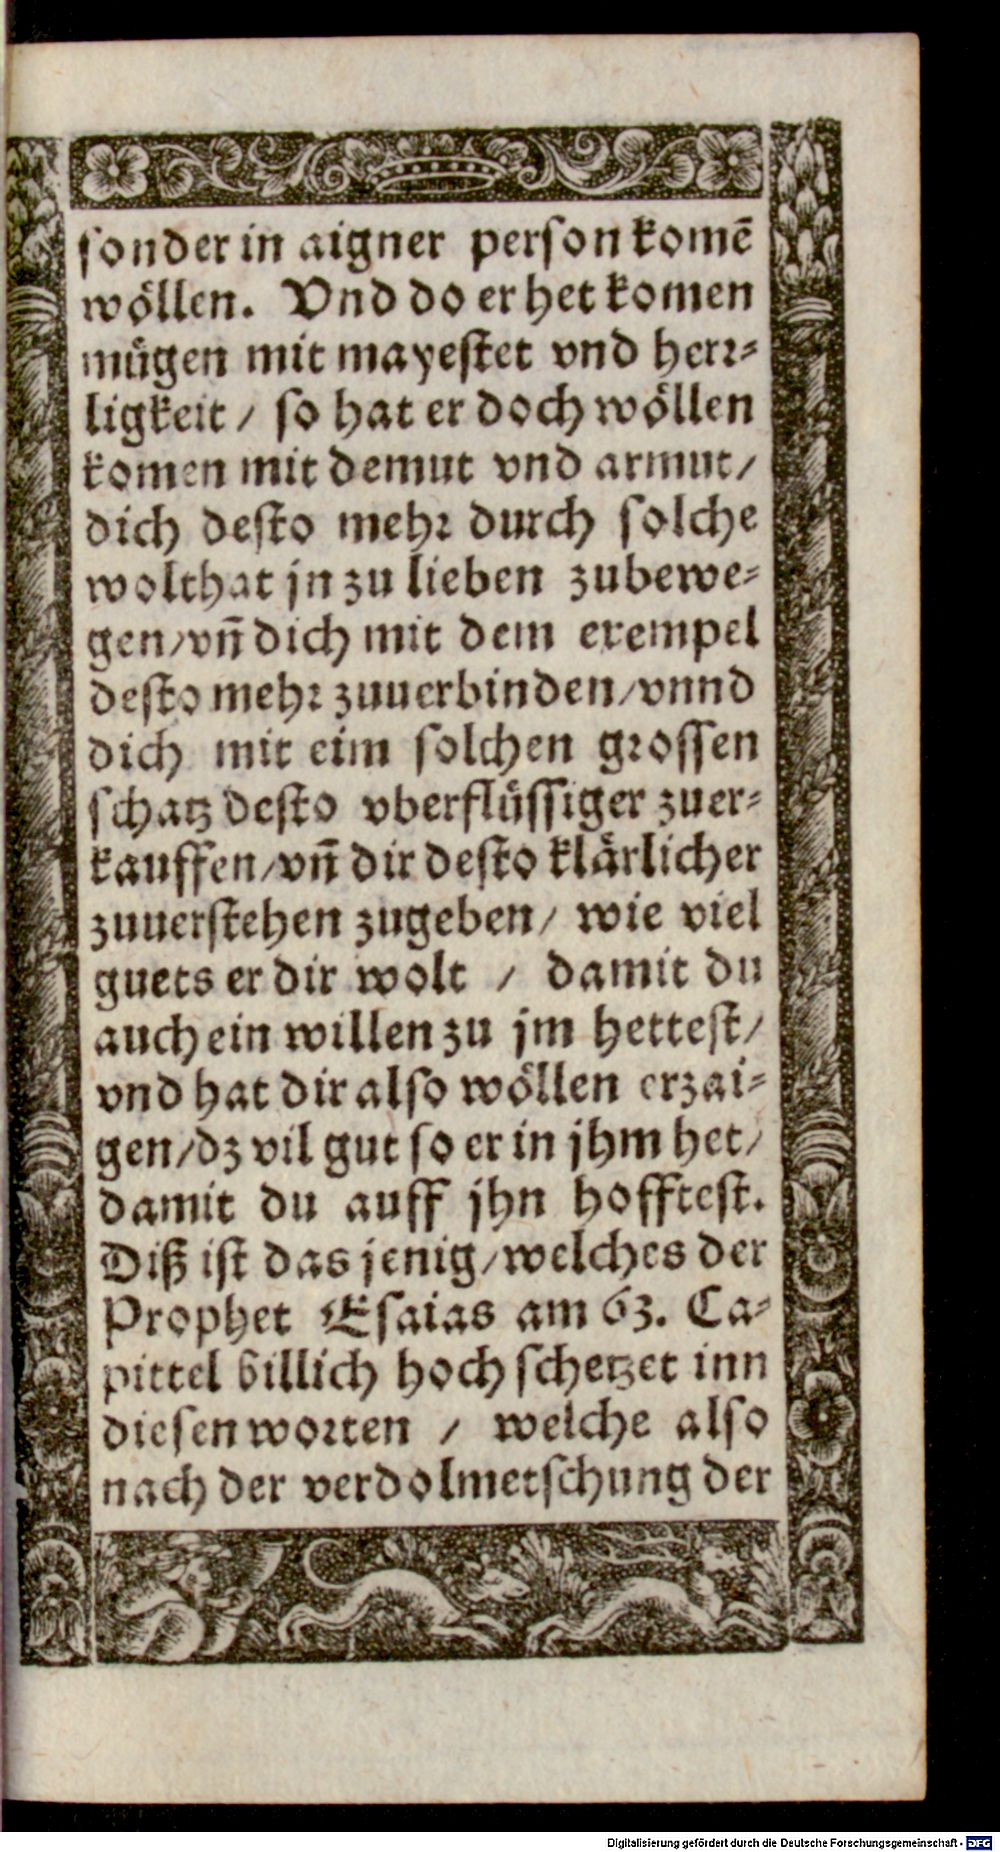 sonder in aigner person komē
wöllen. Vnd do er het komen
mügen mit mayestet vnd herr-
ligkeit / so hat er doch wöllen
komen mit demut vnd armut /
dich desto mehr durch solche
wolthat jn zu lieben zubewe-
gen / vñ dich mit dem exempel
desto mehr zuuerbinden / vnnd
dich mit eim solchen grossen
schatz desto vberflüssiger zuer-
kauffen / vñ dir desto klärlicher
zuuerstehen zugeben / wie viel
guets er dir wolt / damit du
auch ein willen zu jm hettest /
vnd hat dir also wöllen erzai-
gen / dz vil gut so er in jhm het /
damit du auff jhn hofftest.
Diß ist das jenig / welches der
Prophet Esaias am 63. Ca-
pittel billich hoch schetzet inn
diesen worten / welche also
nach der verdolmetschung der
Digitalisierung gefördert durch die Deutsche Forschungsgemeinschaft - DFG